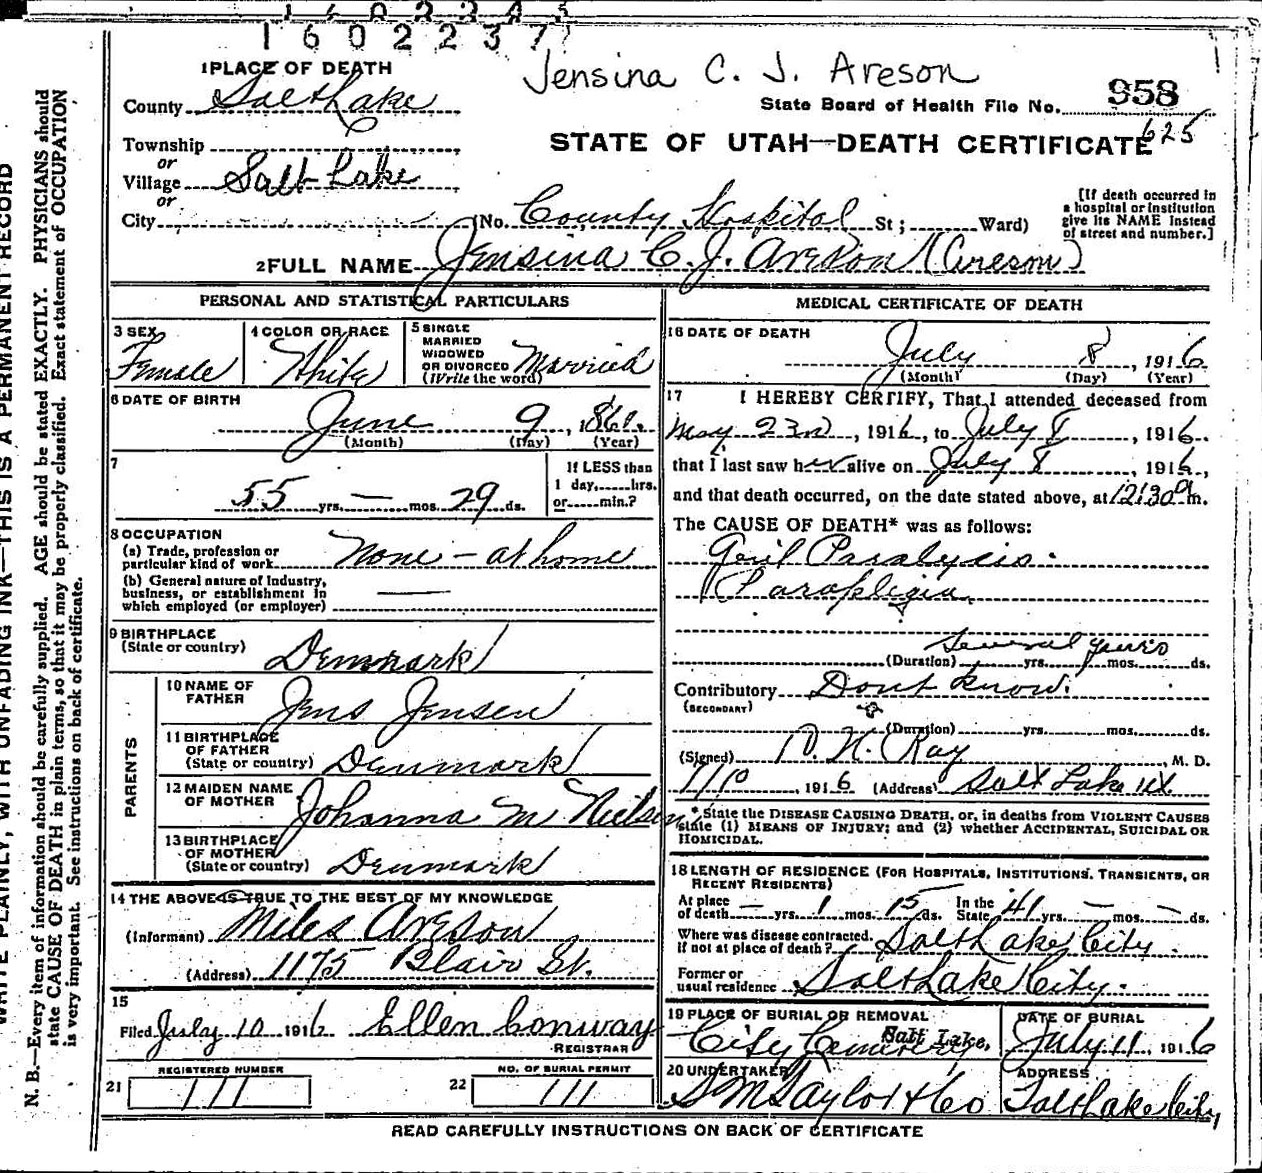 1602237
Jensina C. J. Areson
1 PLACE OF DEATH
County Salt Lake
State Board of Health File No. 958
625
STATE OF UTAH—DEATH CERTIFICATE
Township
or
Village Salt Lake
or
City (No. County Hospital St; Ward)
[If death occurred in
a hospital or institution
give its NAME instead
of street and number.]
2 FULL NAME Jensina C. J. Areson (Areson)
PERSONAL AND STATISTICAL PARTICULARS
3 SEX Female
4 COLOR OR RACE White
5 SINGLE
MARRIED
WIDOWED
OR DIVORCED Married
(Write the word)
6 DATE OF BIRTH
June 9, 1861.
(Month) (Day) (Year)
7
55 yrs. — mos. 29 ds.
If LESS than
1 day,......hrs.
or......min.?
8 OCCUPATION
(a) Trade, profession or
particular kind of work None - at home
(b) General nature of Industry,
business, or establishment in
which employed (or employer) —
9 BIRTHPLACE
(State or country) Denmark
PARENTS
10 NAME OF
FATHER Jens Jensen
11 BIRTHPLACE
OF FATHER
(State or country) Denmark
12 MAIDEN NAME
OF MOTHER Johanna M Nielsen
13 BIRTHPLACE
OF MOTHER
(State or country) Denmark
14 THE ABOVE IS TRUE TO THE BEST OF MY KNOWLEDGE
(Informant) Miles Areson
(Address) 1175 Blair St.
15
Filed July 10 1916 Ellen Conway
REGISTRAR
21 REGISTERED NUMBER
111
22 NO. OF BURIAL PERMIT
111
MEDICAL CERTIFICATE OF DEATH
16 DATE OF DEATH
July 8, 1916
(Month) (Day) (Year)
17 I HEREBY CERTIFY, That I attended deceased from
May 23rd, 1916, to July 8, 1916.
that I last saw her alive on July 8, 1916,
and that death occurred, on the date stated above, at 12:30 m.
The CAUSE OF DEATH* was as follows:
Genl Paralysis.
Paraplegia
Several years
(Duration) yrs. mos. ds.
Contributory Dont know.
(SECONDARY)
(Duration) yrs. mos. ds.
(Signed) Ray, M. D.
7/10, 1916 (Address) Salt Lake Ut.
*State the DISEASE CAUSING DEATH, or, in deaths from VIOLENT CAUSES
state (1) MEANS OF INJURY; and (2) whether ACCIDENTAL, SUICIDAL OR
HOMICIDAL.
18 LENGTH OF RESIDENCE (FOR HOSPITALS, INSTITUTIONS, TRANSIENTS, OR
RECENT RESIDENTS)
At place
of death — yrs. 1 mos. 15 ds. In the
State 41 yrs. — mos. — ds.
Where was disease contracted,
if not at place of death? Salt Lake City.
Former or
usual residence Salt Lake City.
19 PLACE OF BURIAL OR REMOVAL
City Cemetery Salt Lake,
DATE OF BURIAL
July 11, 1916
20 UNDERTAKER
S M Taylor & Co
ADDRESS
Salt Lake City
READ CAREFULLY INSTRUCTIONS ON BACK OF CERTIFICATE
WRITE PLAINLY, WITH UNFADING INK—THIS IS A PERMANENT RECORD
N. B.—Every item of information should be carefully supplied. AGE should be stated EXACTLY. PHYSICIANS should
state CAUSE OF DEATH in plain terms, so that it may be properly classified. Exact statement of OCCUPATION
is very important. See instructions on back of certificate.